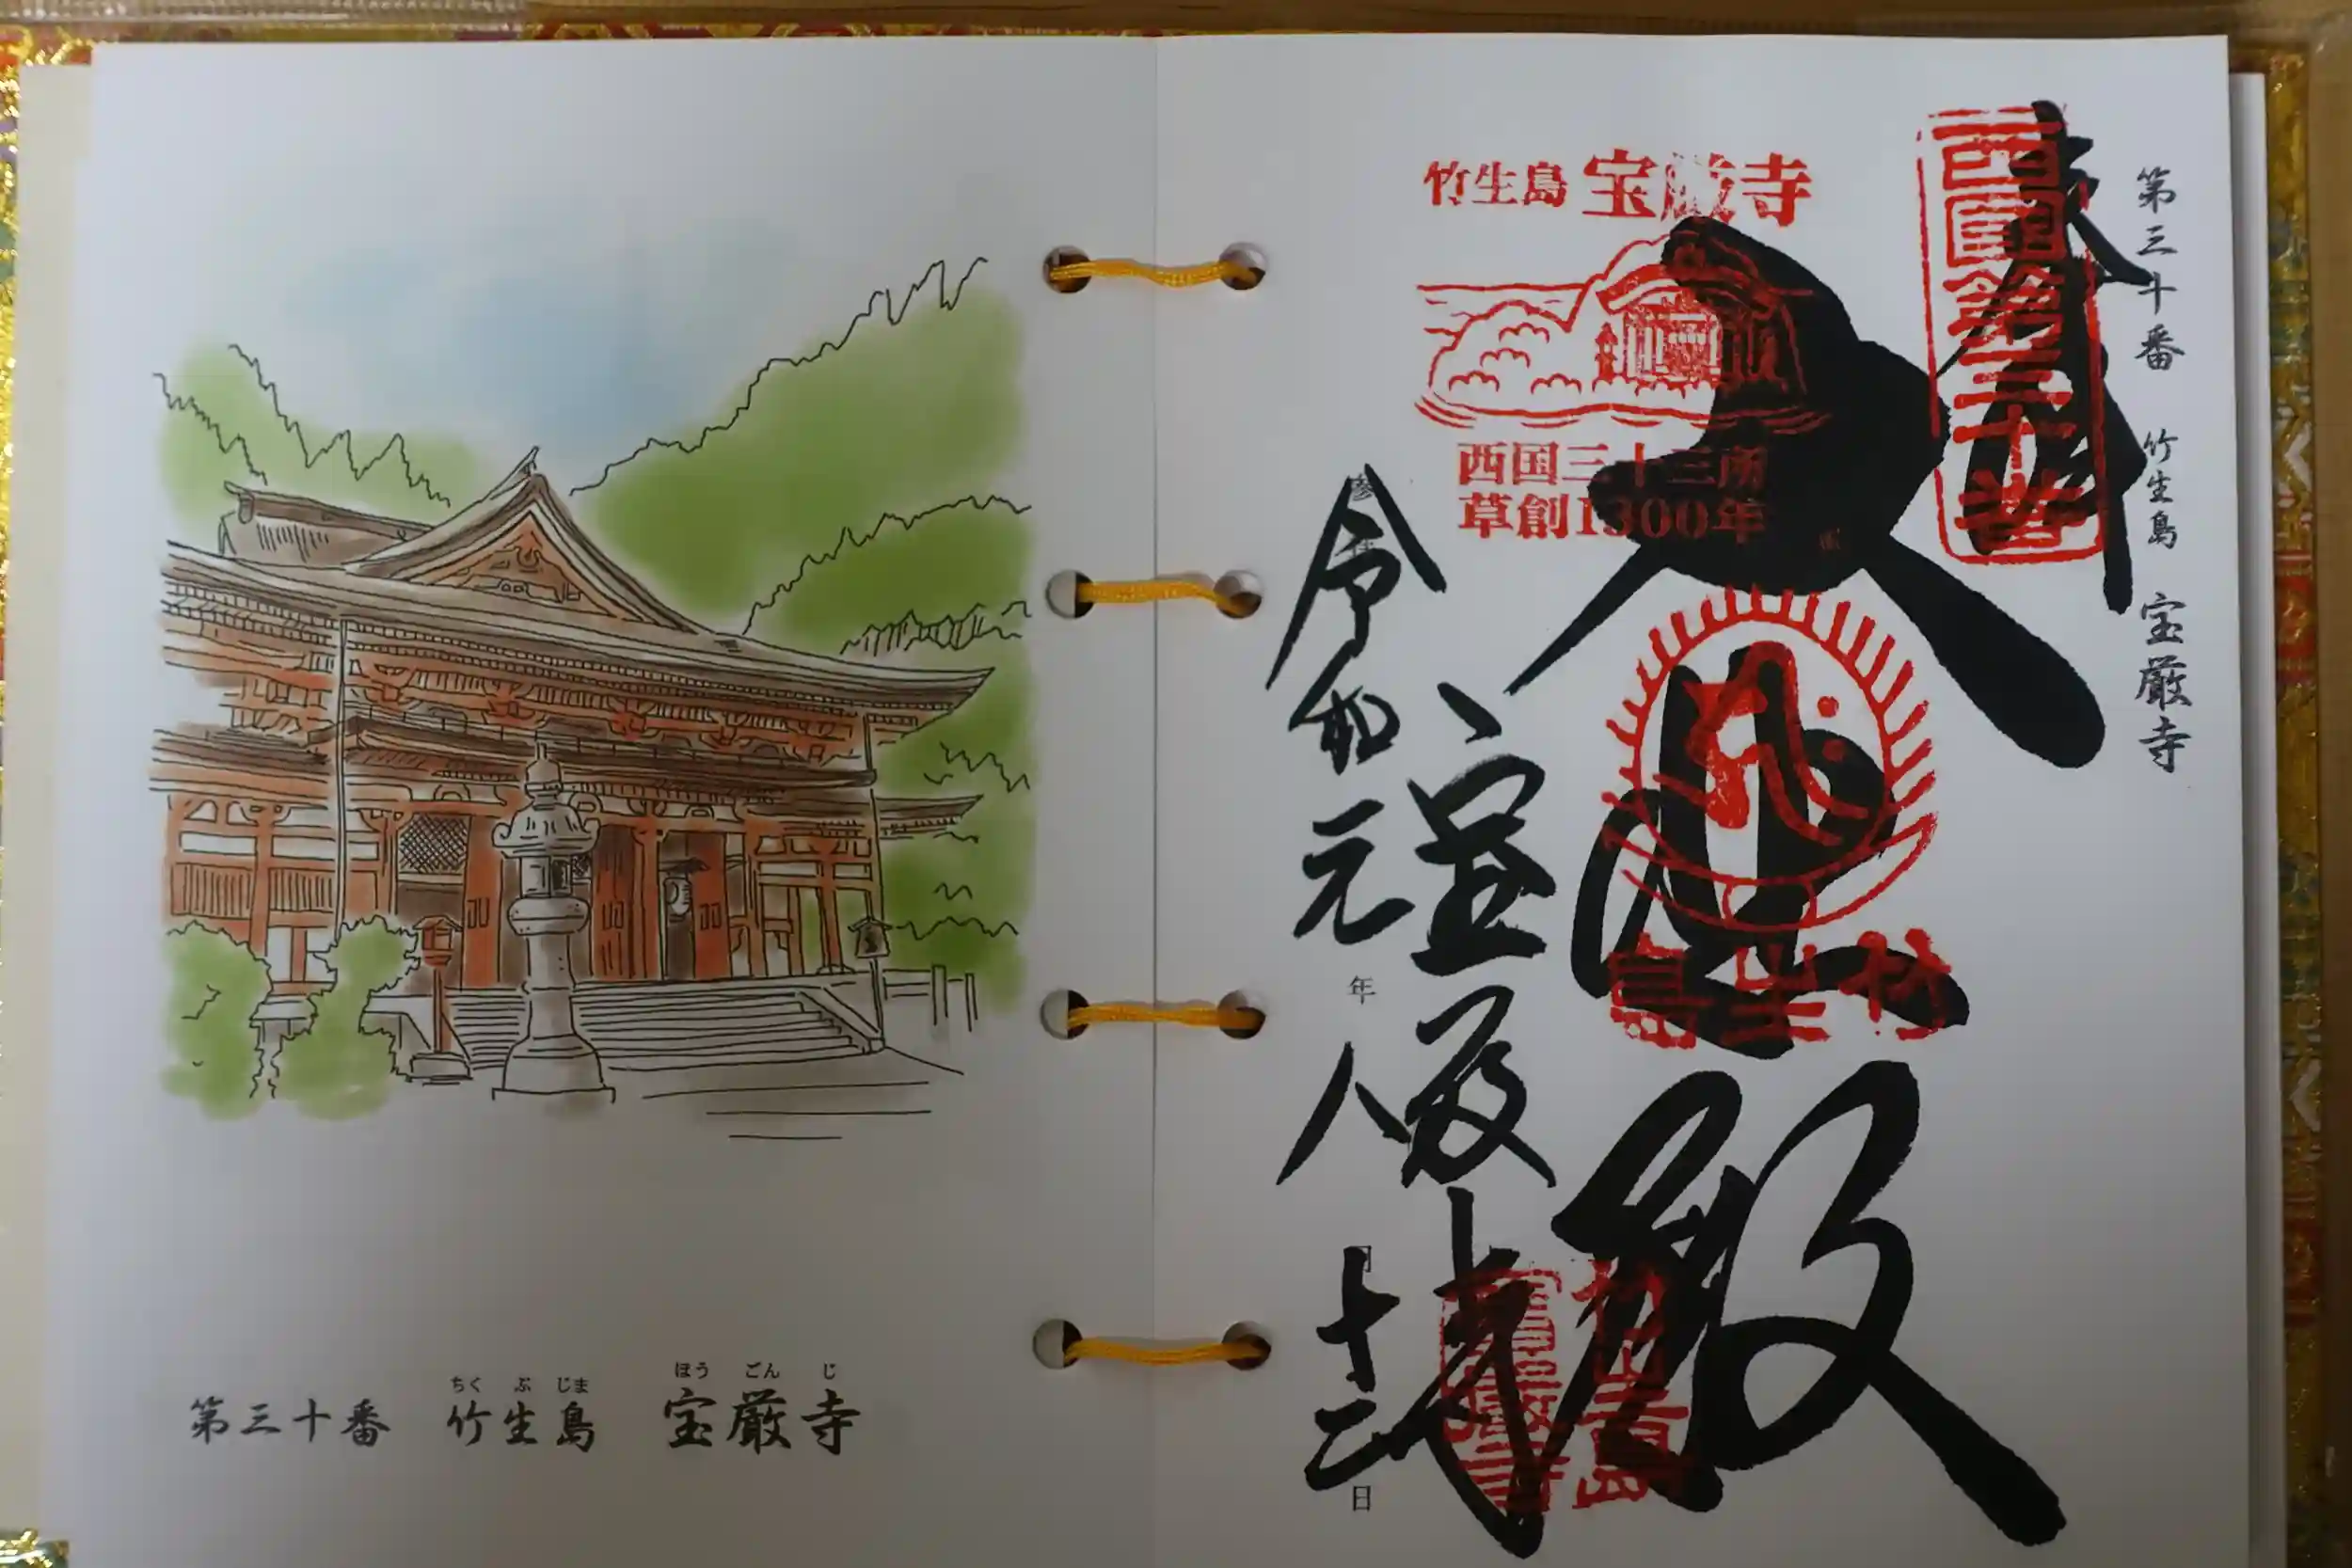 第三十番 竹生島 宝厳寺
ちく ぶ じま ほう ごん じ
第三十番 竹生島 宝厳寺
奉拝
西国第三十番
竹生島 宝厳寺
西国三十三所
草創1300年
大悲殿
竹生島
宝厳寺
令和元年八月十二日